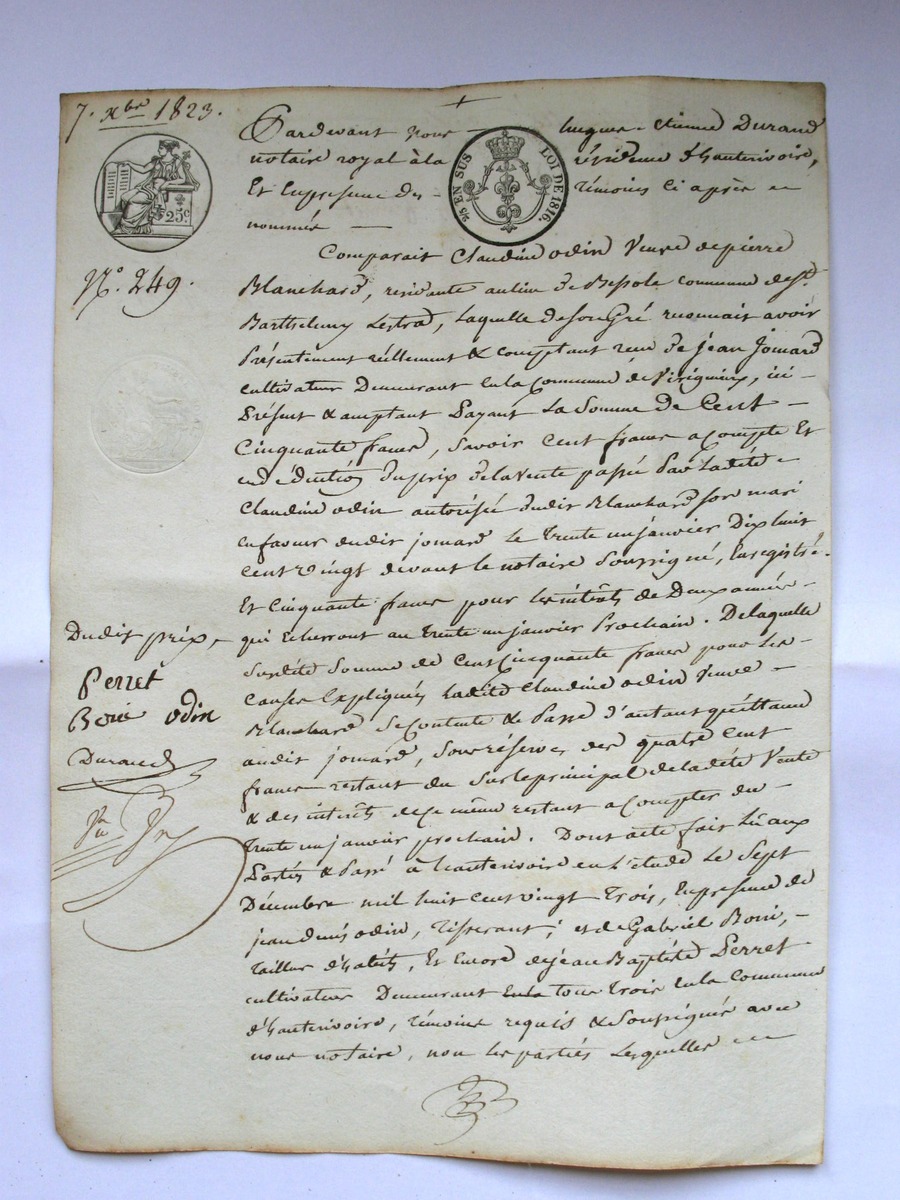 7. Xbre 1823.
Pardevant nous hugues-Etienne Durand
notaire royal à la résidence d'hauterivoire,
Et En presence des témoins ci après
nommés
25c
25 EN SUS
LOI DE 1816.
No. 249.
Comparait Claudine odin Veuve de pierre
Blanchard, residante au lieu de commune de St.
Barthelemy Lestrad, Laquelle de son Gré reconnait avoir
Présentement réellement & comptant reçu de jean jomard
cultivateur Demeurant En la Commune de Virigneux, ici
Présent & acceptant Payant La Somme de Cent
Cinquante francs, Savoir cent francs a compte Et
en déduction du prix de la Vente passée Par Ladite
Claudine odin autorisée dudit Blanchard son mari
en faveur dudit jomard le trente un janvier Dix huit
cent vingt devant le notaire Soussigné, Enregistrée.
Et Cinquante francs pour les intérêts de Deux années
qui Echerront au trente un janvier Prochain. De laquelle
Susdite Somme de Cent Cinquante francs pour les
causes Expliquées Ladite Claudine odin Veuve
Blanchard Se Contente & Passe d'autant quittance
audit jomard, Sous réserves des quatre cent
francs restant du Sur le principal de ladite Vente
& des intérêts de ce même restant a compter du
trente un janvier prochain. Dont acte fait Lu aux
Parties & Passé à hauterivoire en l'étude Le Sept
Décembre mil huit cent vingt Trois, En presence de
jean denis odin, Tisserant; et de Gabriel Boni,
Tailleur d'habits, Et Encore de jean Baptiste Perret
cultivateur Demeurant En la tous Trois En la Commune
d'hauterivoire, témoins requis & Soussignés avec
nous notaire, non les parties Lesquelles
Dudit prix
Perret
odin
Durand